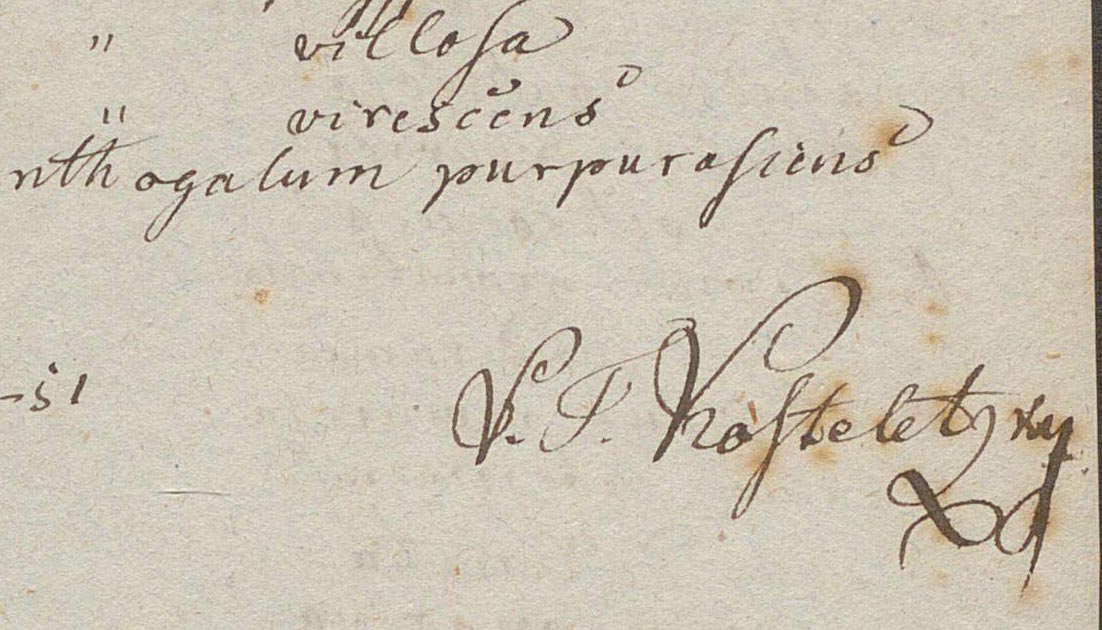 " villosa
" virescens
nthogalum purpurasiens
-51
V. F. Kosteletzky